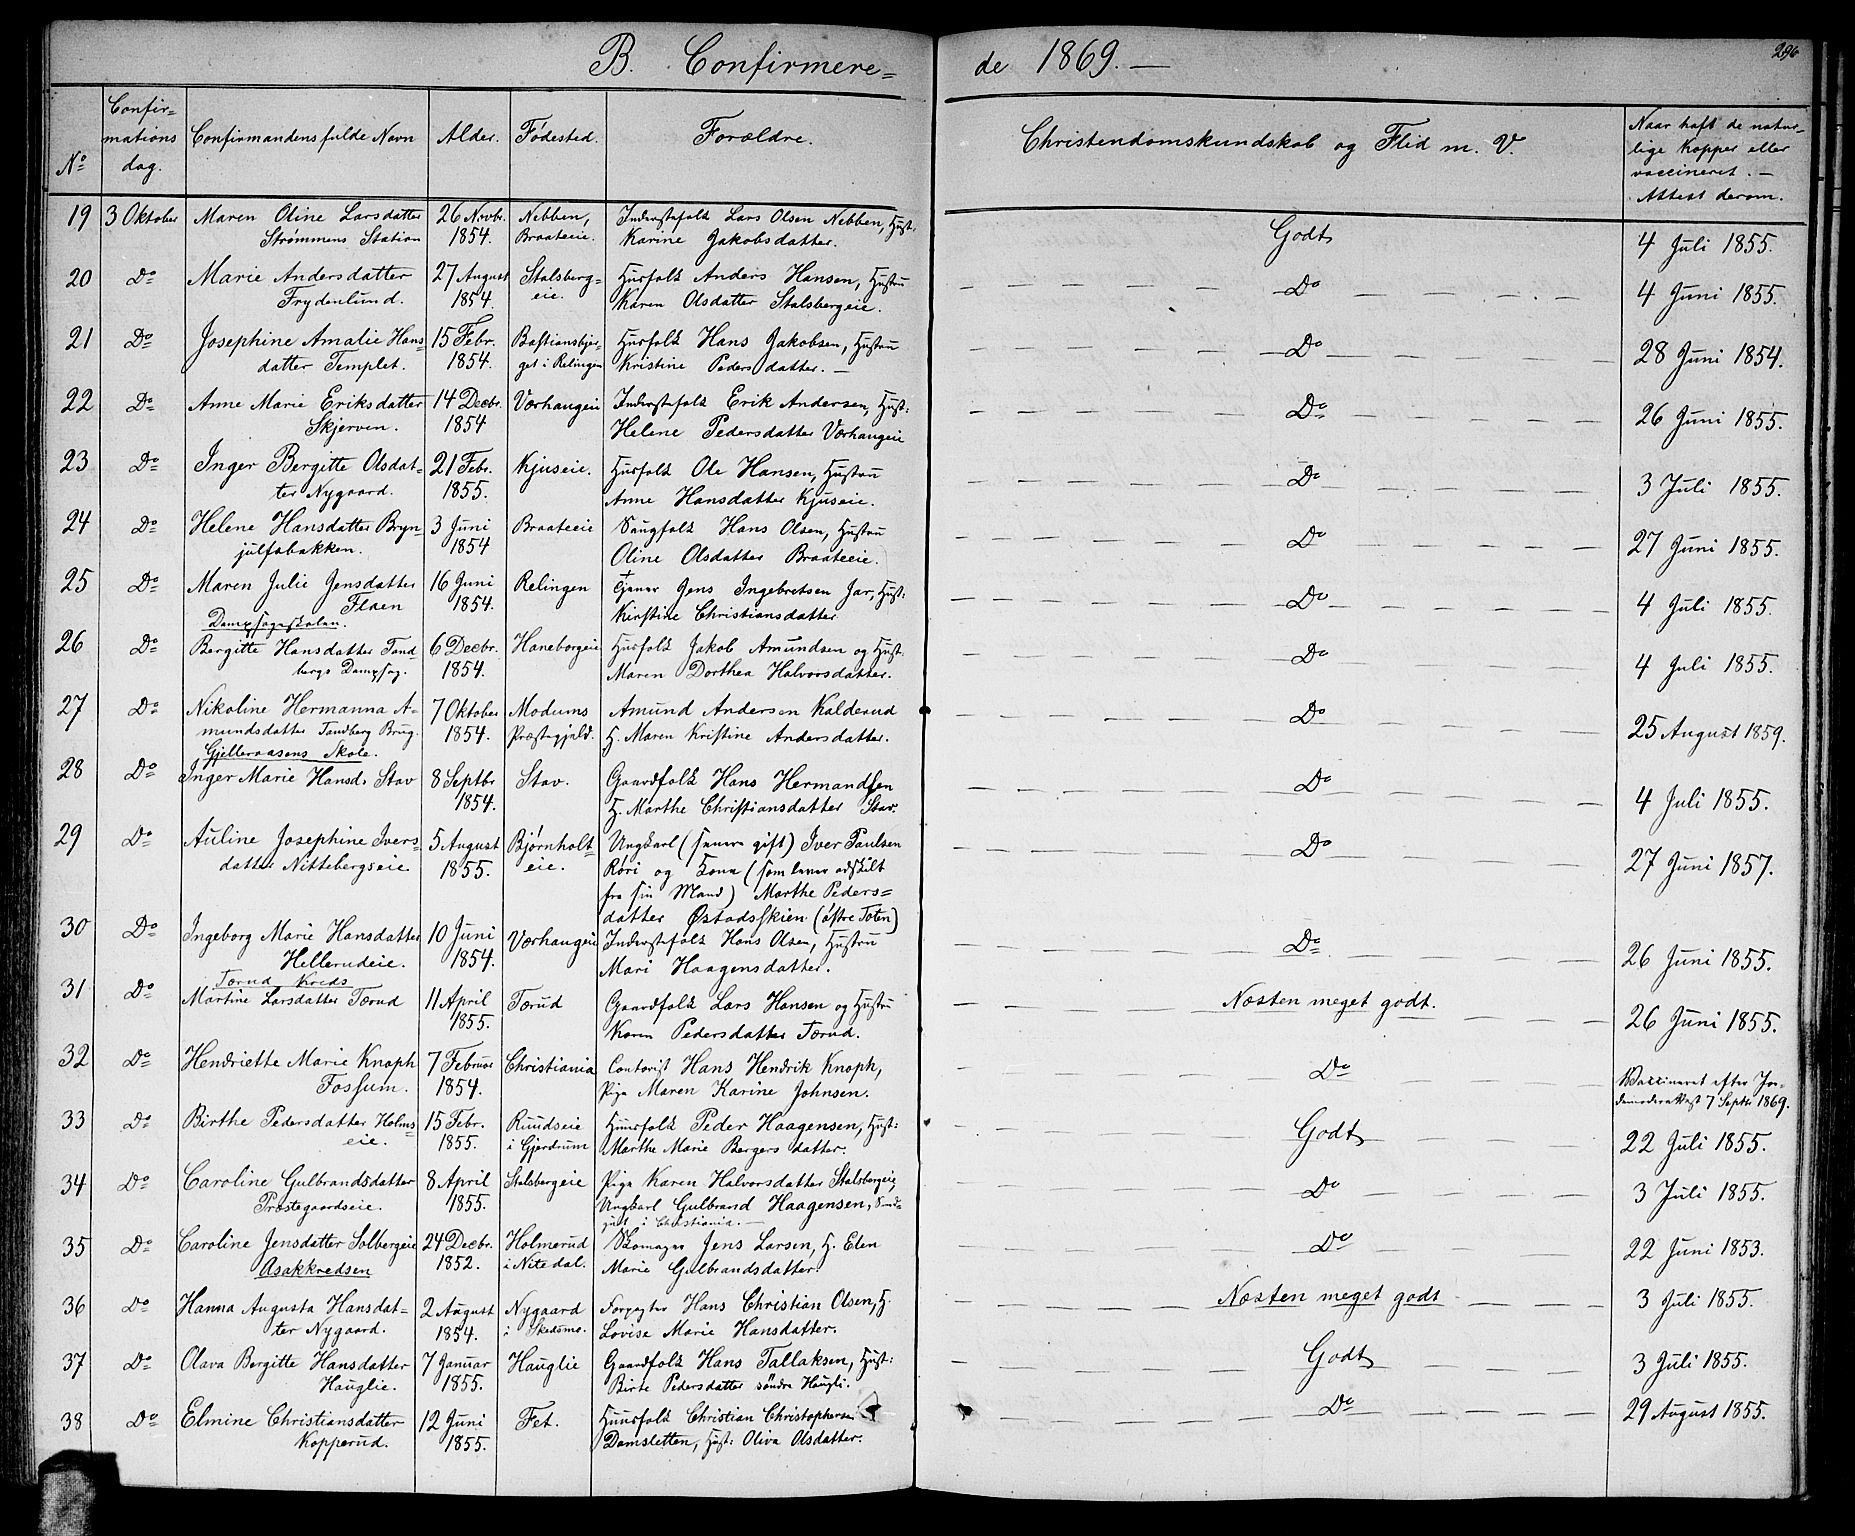 B. Confirmere= de 1869. —
296
No
Confir=
mations
dag.
Confirmandens fulde Navn
Alder.
Fødested.
Forældre.
Christendomskundskab og Flid m. V.
Naar haft de natur=
lige Kopper eller
vaccineret. —
Attest derom.
19 3 Oktober Maren Oline Larsdatter 26 Novbr. Nebben, Inderstefolk Lars Olsen Nebben, Hust: Godt 4 Juli 1855.
Strømmens Station 1854. Braateeie. Karine Jakobsdatter.
20 Do Marie Andersdatter 27 August Stalsberg= Husfolk Anders Hansen, Hustru Do 4 Juni 1855.
Frydenlund. 1854. eie. Karen Olsdatter Stalsbergeie.
21 Do Josephine Amalie Hans= 15 Febr. Bastiansbjer= Husfolk Hans Jakobsen, Hustru Do 28 Juni 1854.
datter Templet. 1854. get i Relingen Kristine Pedersdatter. —
22 Do Anne Marie Eriksdatter 14 Decbr. Vørhaugeie Inderstefolk Erik Andersen, Hust: Do 26 Juni 1855.
Skjerven. 1854 Helene Pedersdatter Vørhaugeie
23 Do Inger Bergitte Olsdat= 21 Febr. Kjuseie. Husfolk Ole Hansen, Hustru Do 3 Juli 1855.
ter Nygaard. 1855. Anne Hansdatter Kjuseie.
24 Do Helene Hansdatter Bryn= 3 Juni Braateeie Saugfolk Hans Olsen, Hustru Do 27 Juni 1855.
julfsbakken. 1854 Oline Olsdatter Braateeie.
25 Do Maren Julie Jensdatter 16 Juni Relingen Tjener Jens Ingebretsen Jar, Hust: Do 4 Juli 1855.
Flaen 1854. Kirstine Christiansdatter
Dampsagskolen.
26 Do Bergitte Hansdatter Tand= 6 Decbr. Haneborgeie Husfolk Jakob Amundsen og Hust. Do 4 Juli 1855.
bergs Dampsag. 1854. Maren Dorthea Halvorsdatter.
27 Do Nikoline Hermanna A= 7 Oktober Modums Amund Andersen Kalderud Do 25 August 1859.
mundsdatter Tandberg Brug. 1854. Præstegjeld. H. Maren Kristine Andersdatter.
Gjelleraasens Skole.
28 Do Inger Marie Hansd. Stav 8 Septbr Stav. Gaardfolk Hans Hermandsen Do 4 Juli 1855.
1854. H. Marthe Christiansdatter Stav.
29 Do Auline Josephine Ivers= 5 August Bjørnholt= Ungkarl (senere gift) Iver Paulsen Do 27 Juni 1857.
datter Nittebergseie 1855. eie. Røri og Kona (som lever adskilt
fra sin Mand) Marthe Peders=
datter Østadsskien (østre Toten)
30 Do Ingeborg Marie Hansdatter 10 Juni Vørhaugeie Inderstefolk Hans Olsen, Hustru Do 26 Juni 1855.
Hellerudeie. 1854. Mari Haagensdatter.
Tørud Kreds
31 Do Martine Larsdatter Tørud 11 April Tørud Gaardfolk Lars Hansen og Hustru Næsten meget godt. 26 Juni 1855.
1855. Karen Pedersdatter Tørud.
32 Do Hendriette Marie Knoph 7 Februar Christiania Contorist Hans Hendrik Knoph, Do Vaccineret efter Jor=
Fossum. 1854. Pige Maren Karine Johnsen. demoderattest 7 Septbr 1869.
33 Do Birthe Pedersdatter Holms= 15 Febr. Ruudseie Huusfolk Peder Haagensen, Hust: Godt 22 Juli 1855.
eie. 1855. i Gjerdrum Marthe Marie Bergersdatter.
34 Do Caroline Gulbrandsdatter 8 April Stalsbergeie Pige Karen Halvorsdatter Stalsbergeie, Do 3 Juli 1855.
Præstegaardseie. 1855. Ungkarl Gulbrand Haagensen,
i Christiania. —
35 Do Caroline Jensdatter Solbergeie 24 Decbr. Holmerud Skomager Jens Larsen, H. Elen Do 22 Juni 1853.
Asakkredsen 1852. i Nitedal. Marie Gulbrandsdatter.
36 Do Hanna Augusta Hansdat= 2 August Nygaard Forpagter Hans Christian Olsen, H. Næsten meget godt 3 Juli 1855.
ter Nygaard. 1854. i Skedsmo. Lovise Marie Hansdatter.
37 Do Olava Bergitte Hansdatter 7 Januar Hauglie Gaardfolk Hans Tallaksen, Hust: Godt 3 Juli 1855.
Hauglie. 1855. Birte Pedersdatter søndre Haugli.
38 Do Elmine Christiansdatter 12 Juni Fet. Huusfolk Christian Christophersen Do 29 August 1855.
Kopperud. 1855. Damsletten, Hust: Oliva Olsdatter.